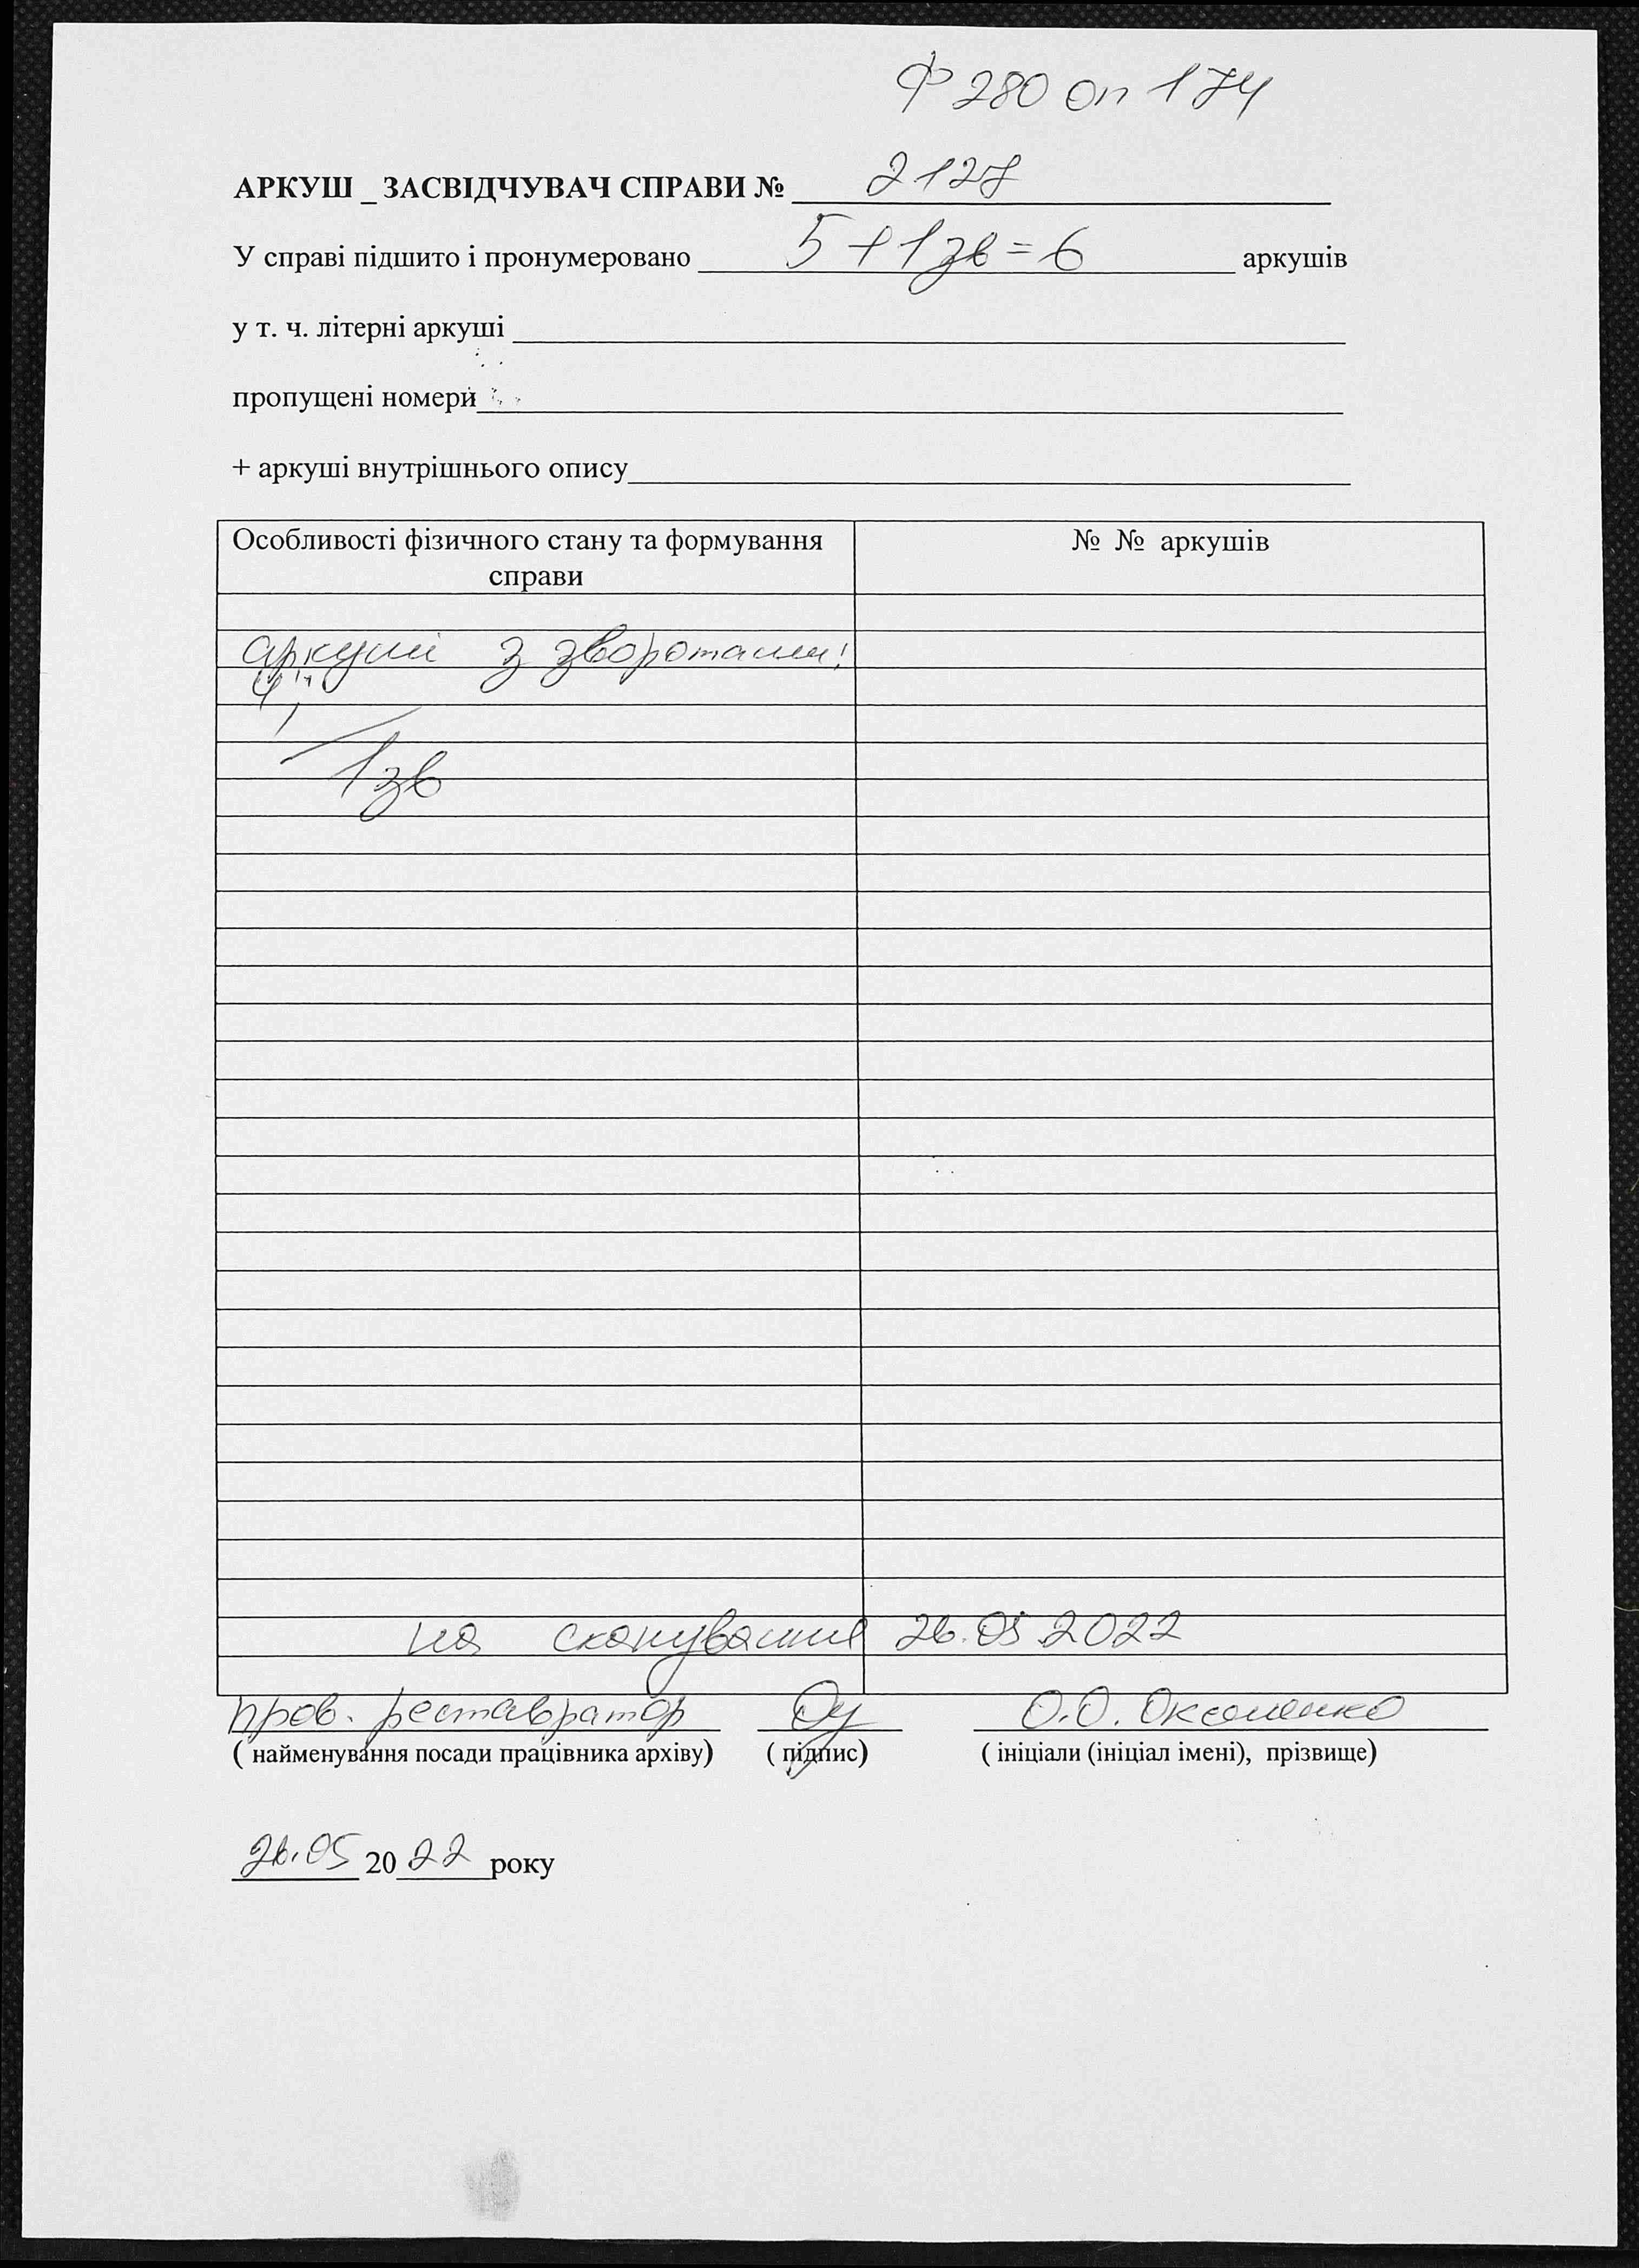 Ф 280 оп 174
АРКУШ _ ЗАСВІДЧУВАЧ СПРАВИ № 2127
У справі підшито і пронумеровано 5+1зв=6 аркушів
у т. ч. літерні аркуші
пропущені номери
+ аркуші внутрішнього опису
Особливості фізичного стану та формування справи
№ № аркушів
аркуші з зворотами:
4
1зв
на сканування 26.05.2022
пров. реставратор
О.О.
( найменування посади працівника архіву) ( підпис) ( ініціали (ініціал імені), прізвище)
26.05 2022 року